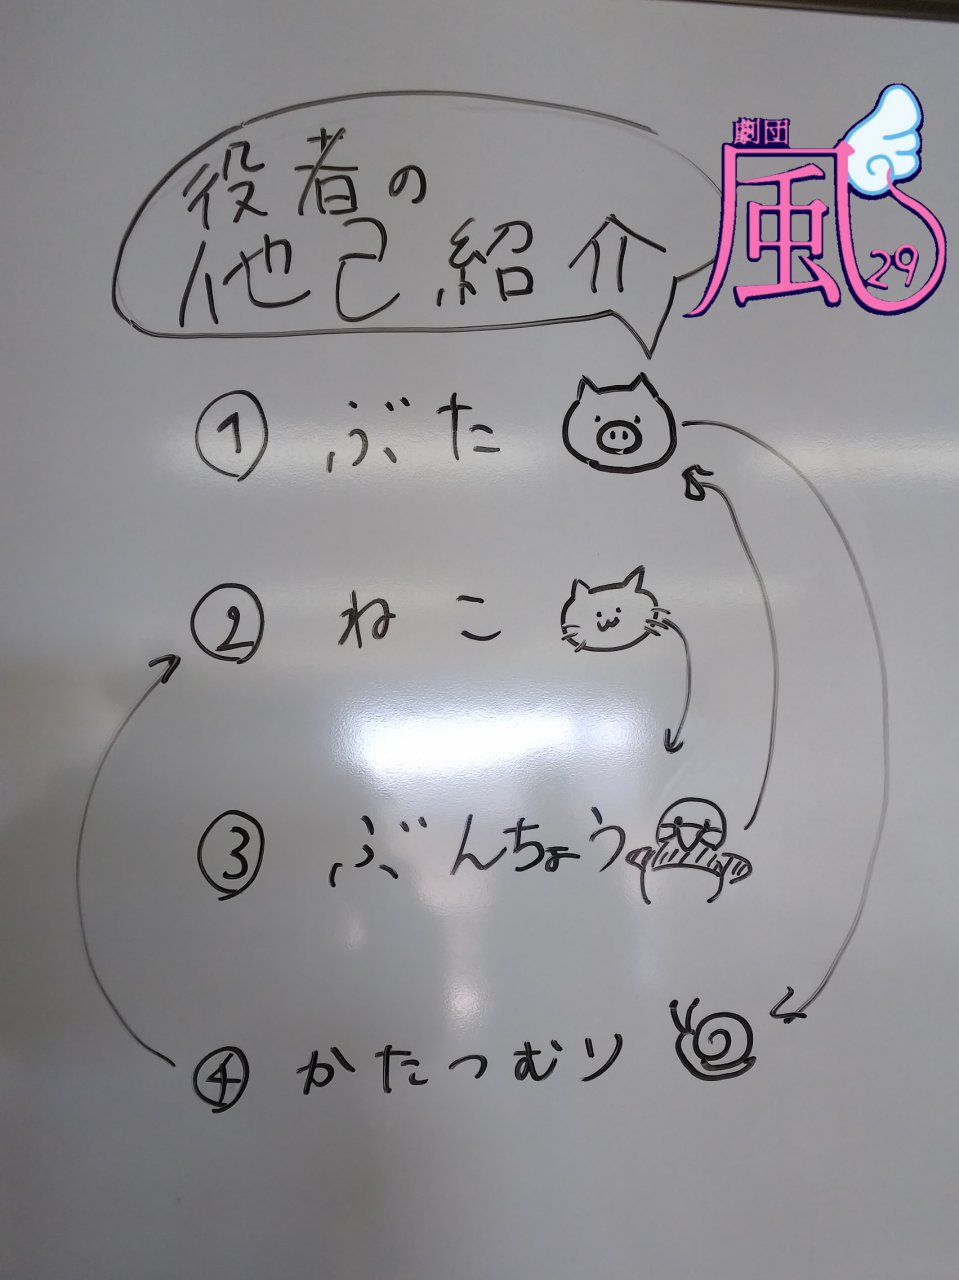 劇団
風
29
役者の
他己紹介
① ぶた
② ねこ
③ ぶんちょう
④ かたつむり